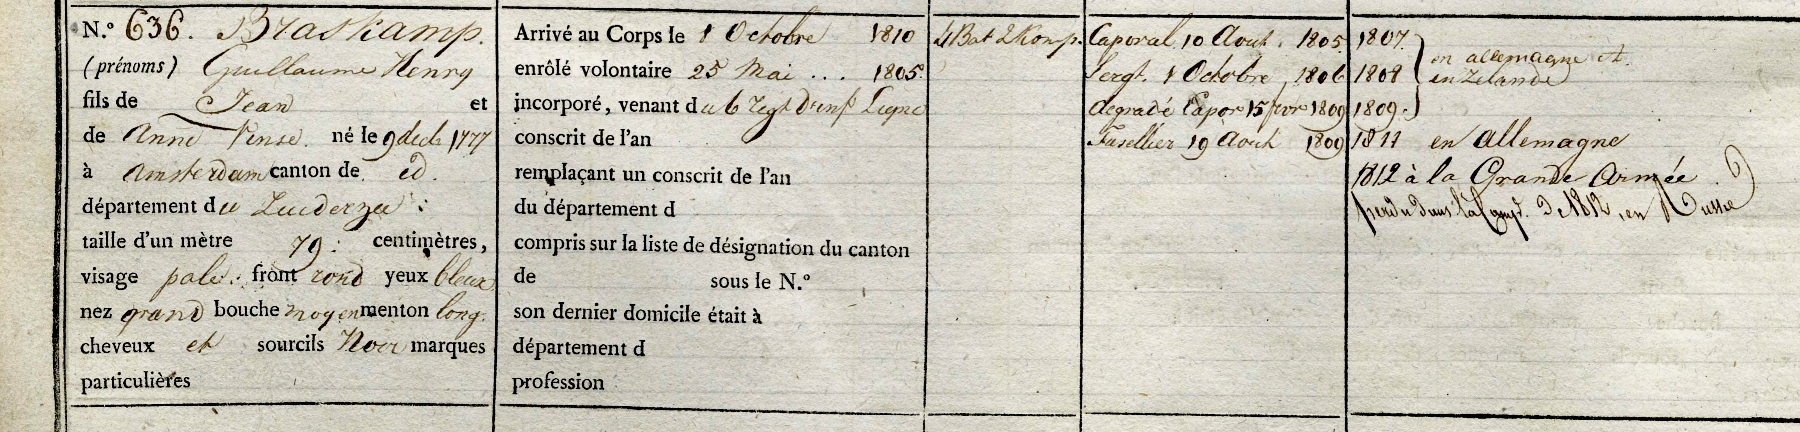 N.º 636. Braskamp.
(prénoms) Guillaume Henry
fils de Jean et
de Anne Vense né le 9 decb 1777
à Amsterdam canton de id.
département du Zuiderzee :
taille d'un mètre 79 : centimètres,
visage pale. front rond yeux bleux
nez grand bouche moyen menton long.
cheveux et sourcils Noir marques
particulières
Arrivé au Corps le 1 Octobre 1810
enrôlé volontaire 25 Mai ... 1805.
incorporé, venant du 6 regt d'inf Ligne
conscrit de l'an
remplaçant un conscrit de l'an
du département d
compris sur la liste de désignation du canton
de sous le N.º
son dernier domicile était à
département d
profession
4 Bat 2 Komp.
Caporal 10 Aout. 1805
Sergt. 1 Octobre 1806
degradé Capor 15 fvr 1809
Fusellier 19 Aout 1809
1807.
1808
1809.
en allemagne et
en Zelande
1811 en Allemagne
1812 à la Grande Armée
perdu dans la Camp. de 1812, en Russie